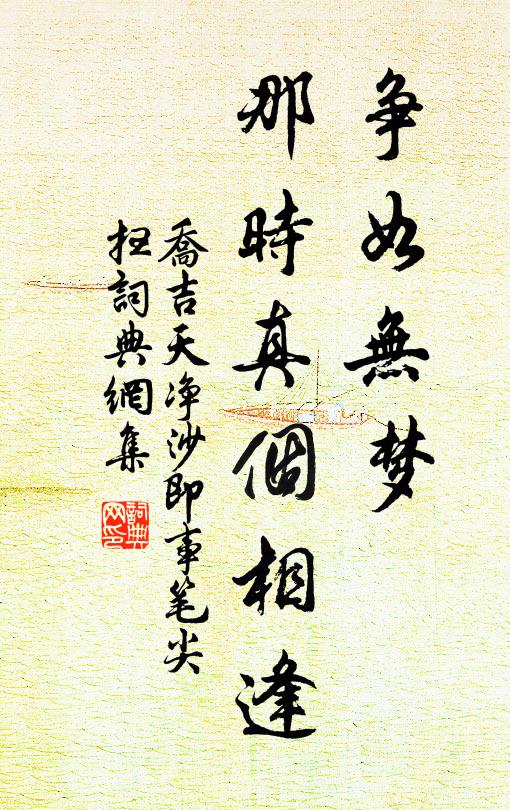 争如無梦
那時真個相逢
喬吉天净沙即事笔尖
扫詞典網集
詞典
网印